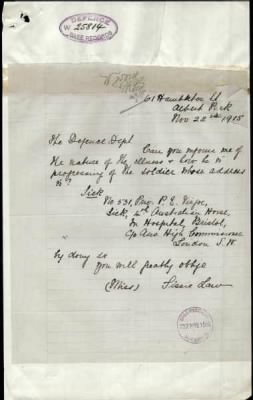 DEFENCE
25814
BASE RECORDS
Albert Park
Nov 22nd 1915
The Defence Dept
Can you inform me of
the nature of the illness & how he is
progressing of the soldier whose address
is?
Sick
No 531, Pay. P. E.
Sick, 4th Australian Horse,
In Hospital, Bristol,
C/o Aus. High Commissioner
London S. W
by doing so
you will greatly oblige
(Miss)